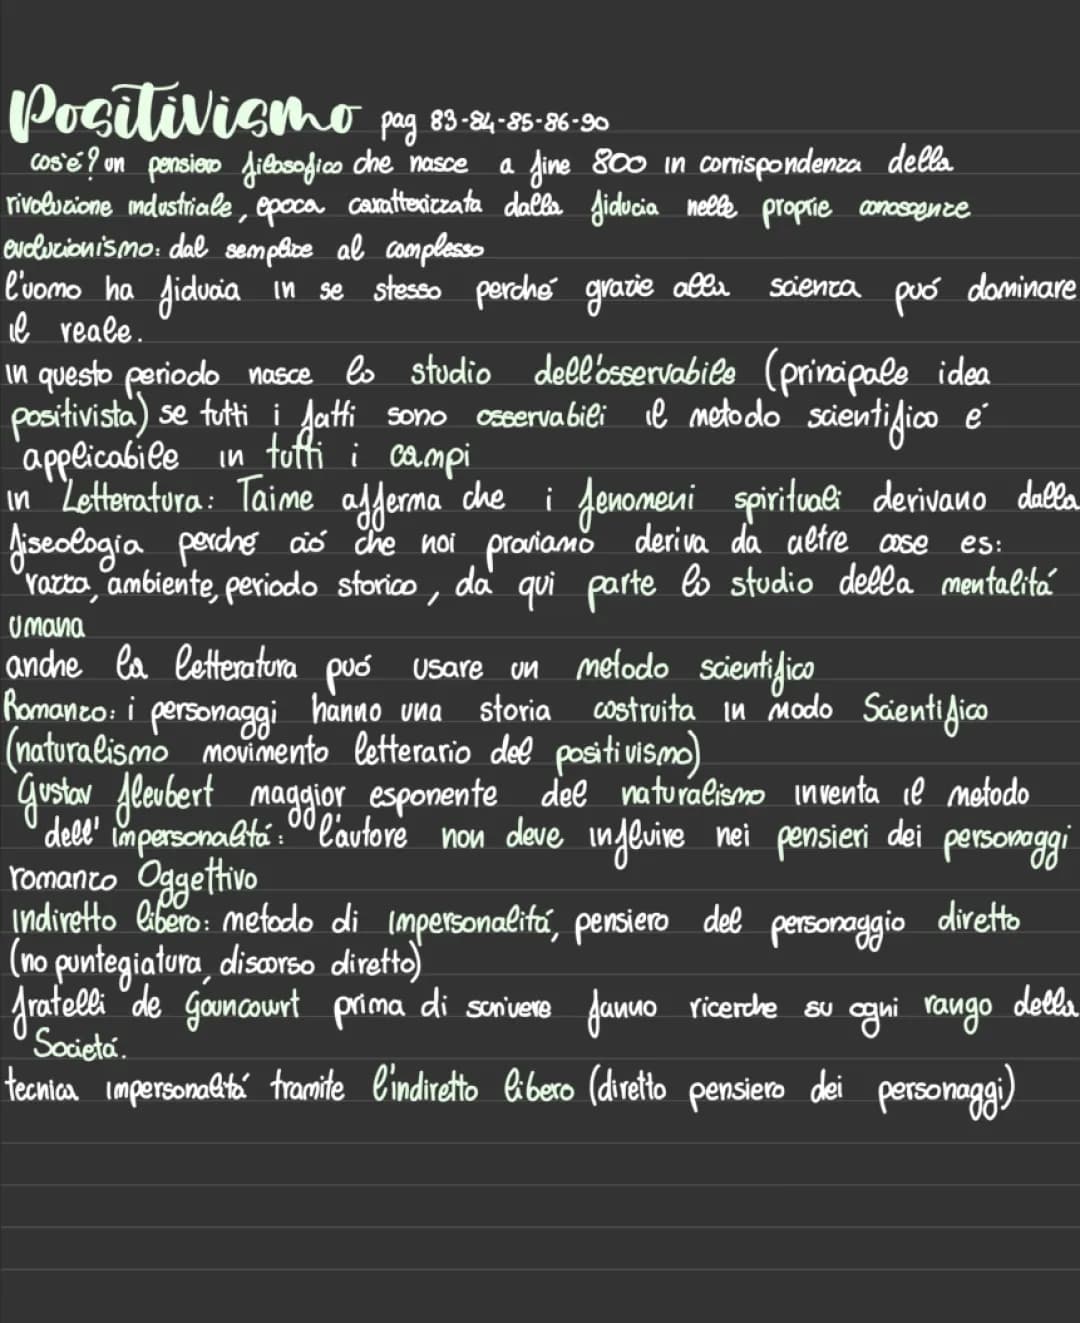 Positivismo pag 83-84-85-86-90
cos'é? un pensiero filosofico che nasce a fine 800 in corrispondenza della
rivoluzione industriale, epoca caratterizzata dalla fiducia nelle proprie conoscenze
evoluzionismo: dal semplice al complesso
l'uomo ha fiducia in se stesso perché grazie alla scienza puó dominare
il reale.
in questo periodo nasce lo studio dell'osservabile (principale idea
positivista) se tutti i fatti sono osservabili il metodo scientifico é
applicabile in tutti i campi
in Letteratura: Taime afferma che i fenomeni spirituali derivano dalla
fiseologia perché ció che noi proviamo deriva da altre cose es:
razza, ambiente, periodo storico, da qui parte lo studio della mentalitá
umana
anche la letteratura puó usare un metodo scientifico
Romanzo: i personaggi hanno una storia costruita in modo Scientifico
(naturalismo movimento letterario del positivismo)
Gustav fleubert maggior esponente del naturalismo inventa il metodo
dell' impersonalitá: l'autore non deve influire nei pensieri dei personaggi
romanzo Oggettivo
indiretto libero: metodo di impersonalitá, pensiero del personaggio diretto
(no puntegiatura, discorso diretto)
fratelli de Gouncourt prima di scrivere fanno ricerche su ogni rango della
Societá.
tecnica impersonalitá tramite l'indiretto libero (diretto pensiero dei personaggi)